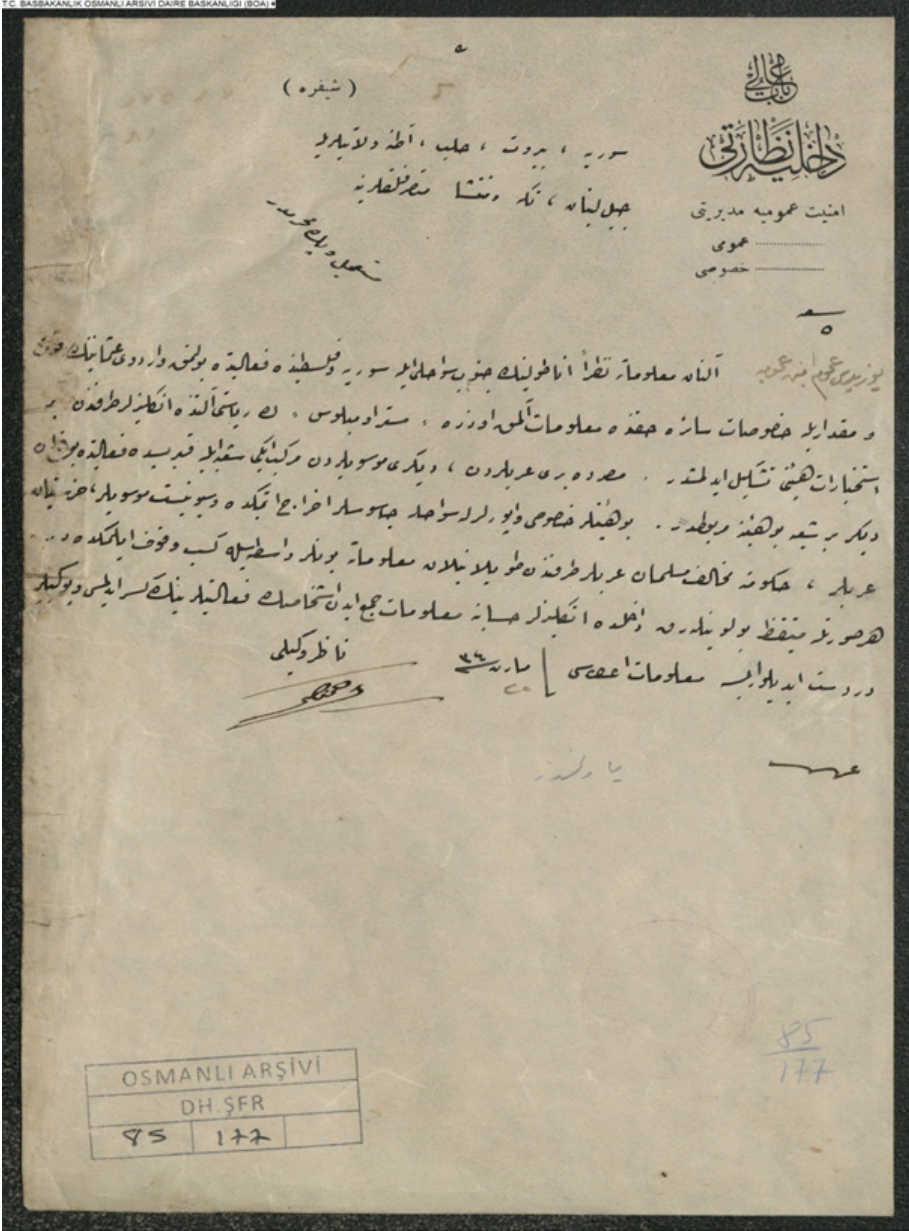 T.C. BAŞBAKANLIK OSMANLI ARŞİVİ DAİRE BAŞKANLIĞI (BOA)
باب عالی
داخلیه نظارتی
امنیت عمومیه مدیریتی
عمومی
خصوصی
( شیفره )
سوریه ، بیروت ، حلب ، آطنه ولایتلریله
جبل لبنان ، تكه ومنتشا متصرفلقلرینه
آلنان معلوماته نظراً اناطولینك جنوب سواحلیله سوریه وفلسطینده فعالیتده بولنمق واردوی عثمانینك
و مقداریله خصوصات سائره حقنده معلومات آلمق اوزره ، مستر ، ك ریاستی آلتنده انكلیزلر طرفندن بر
استخبارات هیئتی تشكیل ایدلمشدر . مصرده بری عربلردن ، دیكری موسویلردن مركب ایكی شعبه ایله قبریسده فعالیتده بولنان
دیكر بر شعبه بو هیئته مربوطدر . بو هیئتلر خصوصی واپورلرله سواحله جاسوسلر اخراج ایتمكده وسیونیست موسویلر ، خرستیان
عربلر ، حكومته مخالف مسلمان عربلر طرفندن طوپلانیلان معلوماته بونلر واسطه‌سیله كسب وقوف ایلمكده در .
هر صورتله متیقظ بولونیلارق داخلده انكلیزلر حسابنه معلومات جمع ایدن اشخاصك فعالیتلرینك كسر ایدلمسی
دردست ایدیلورلرسه معلومات اعطاسی
مارت ٣٤
٢٥
ناظر وكیلی
85
177
OSMANLI ARŞİVİ
DH.ŞFR
85 177